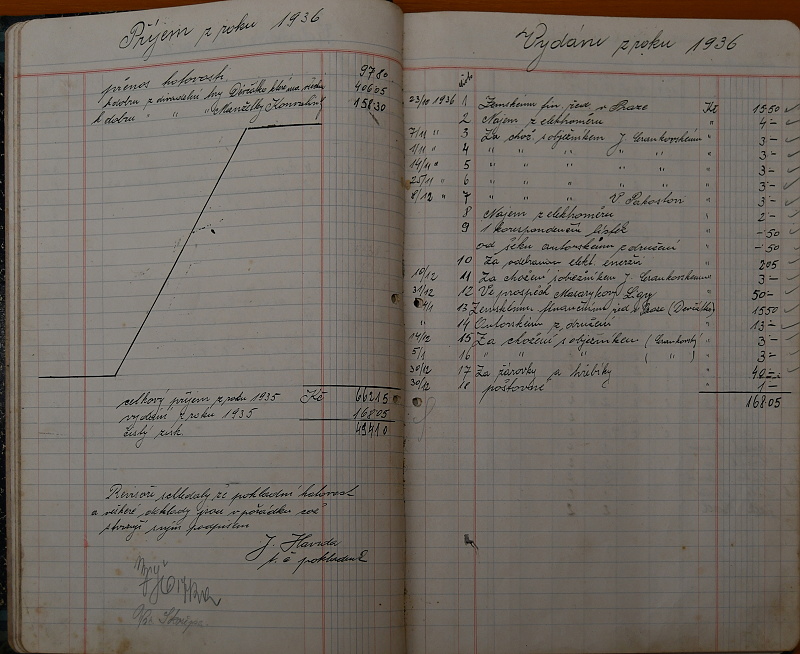 Příjem z roku 1936
přenos hotovosti 9780
k dobru z divadelní hry Děvčátko 40605
k dobru " " " Manželky Konvalinky 15830
celkový příjem z roku 1935 Kč 66215
vydání z roku 1935 16805
čistý zisk 49410
Revisoři shledaly že pokladní hotovost
a veškeré doklady jsou v pořádku což
stvrzují svým podpisem
J. Havrda
t. č. pokladník
Vydání z roku 1936
23/10 1936 1 Zemskému fin. úřed. v Praze Kč 1550
2 Nájem z elektroměru " 4-
7/11 " 3 Za chož. s oběžníkem J. Grankovskému " 3-
1/11 " 4 " " " " " " 3-
14/11 " 5 " " " " " " 3-
25/11 " 6 " " " " " " 3-
8/12 " 7 " " " V. " 3-
8 Nájem z elektroměru " 2-
9 1 korespondenční lístek " -50
od šeku autorskému združení " -50
10 Za odebranou elekt. energii " 205
10/12 11 Za chožení s oběžníkem J. Grankovskému " 3-
31/12 12 Ve prospěch Masarykovy Ligy 50-
4/1 13 Zemskému finančnímu úřed. v Praze (Děvčátko) 1550
" 14 Autorskému združení " 13-
14/12 15 Za chožení s oběžníkem (Grankovský) " 3-
5/1 16 " " " ( " ) " 3-
30/12 17 Za žárovky a hřebíky " 40-
30/12 18 poštovné " 1-
16805